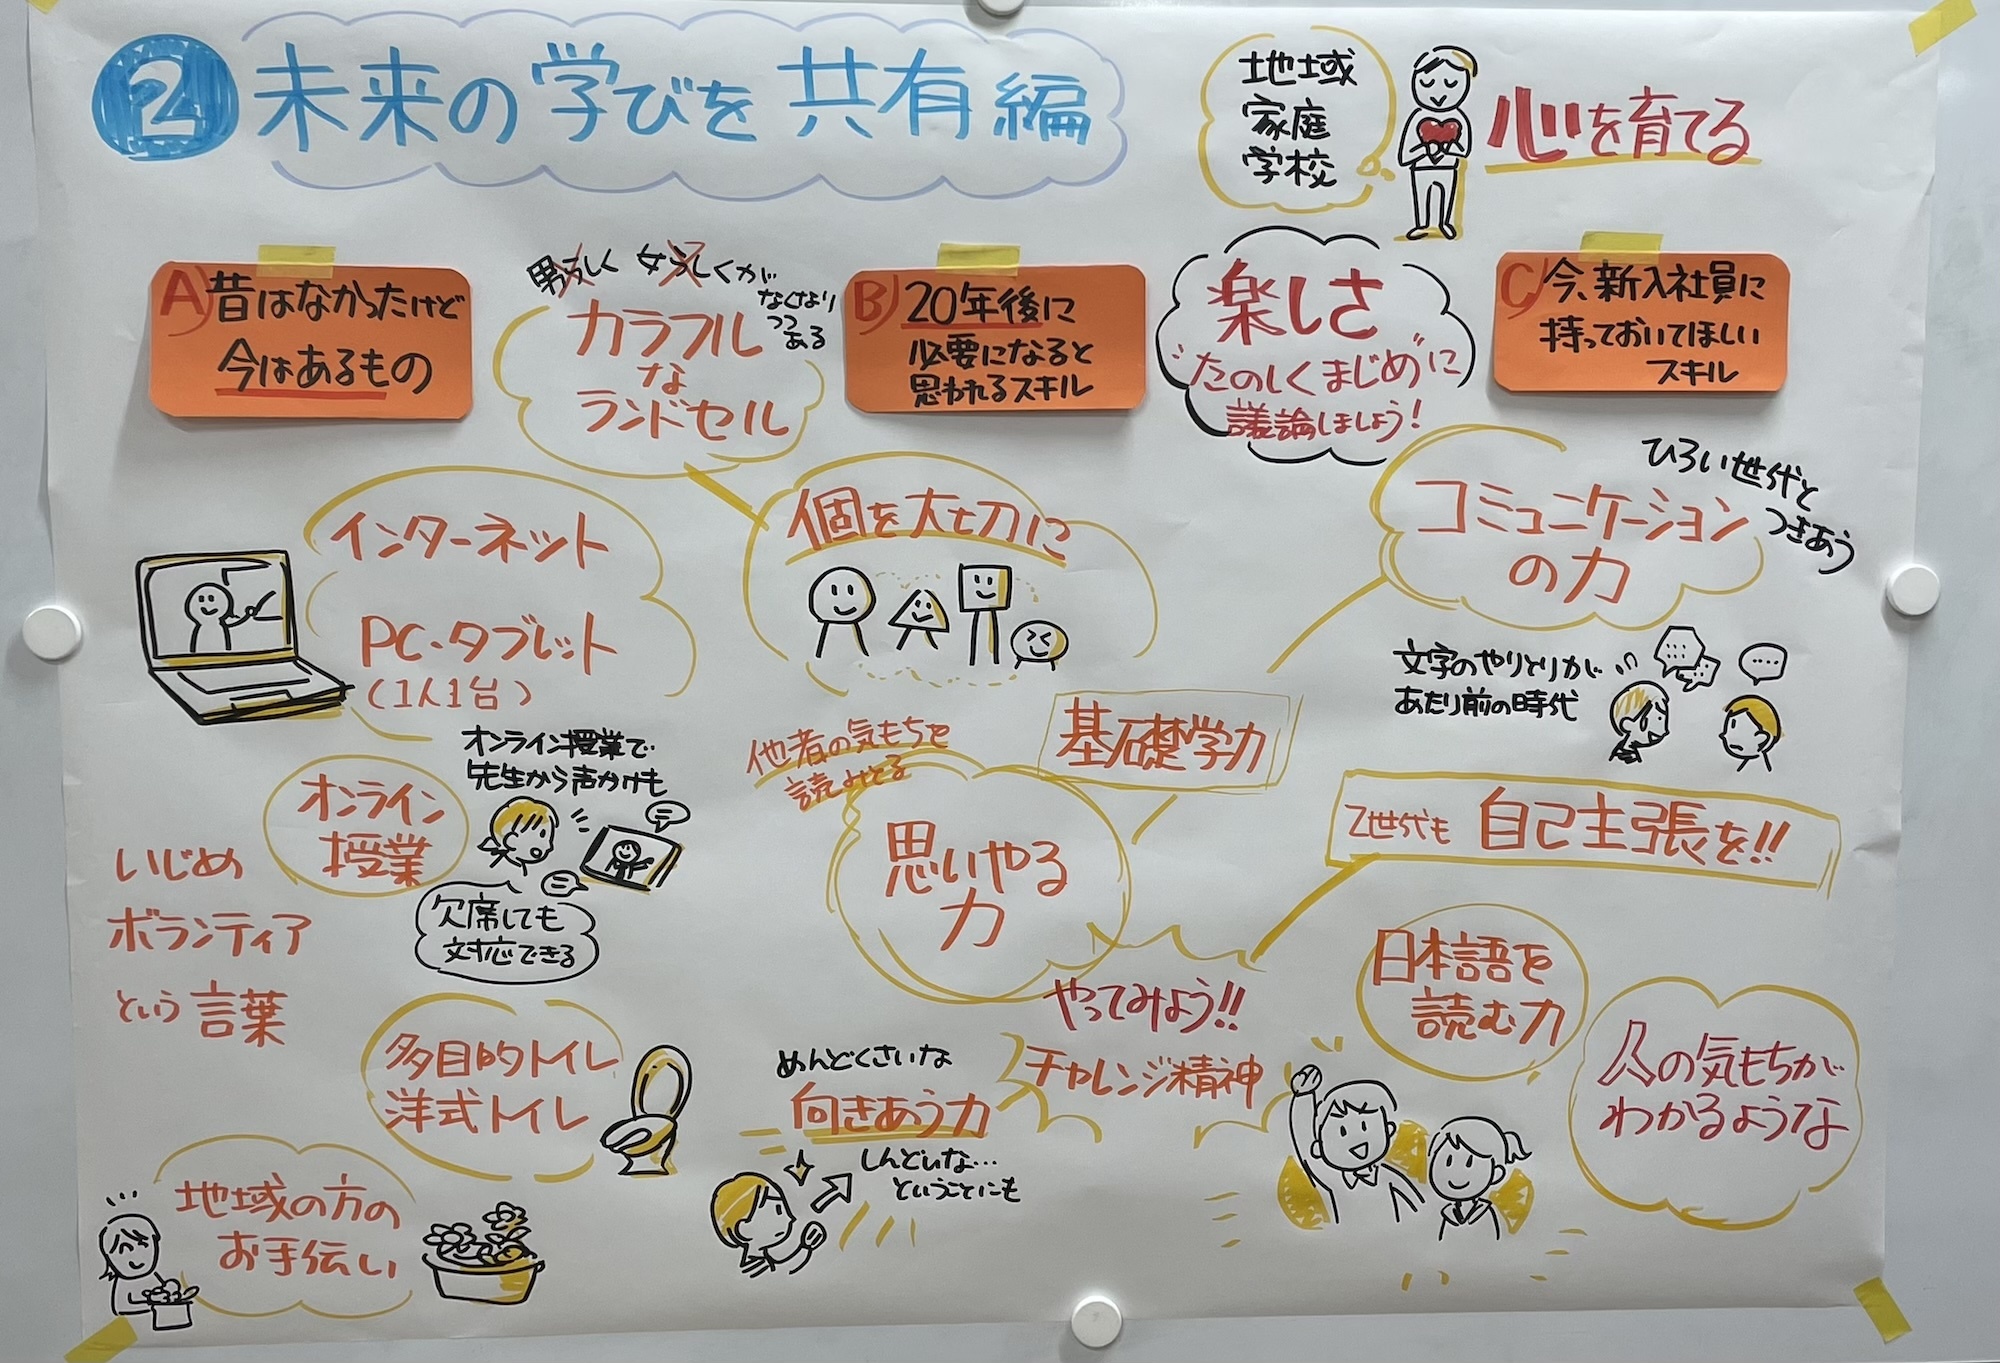 2 未来の学びを共有編
地域
家庭
学校
心を育てる
A) 昔はなかったけど
今はあるもの
男らしく 女らしくが
なくなり
つつ
ある
カラフル
な
ランドセル
B) 20年後に
必要になると
思われるスキル
楽しさ
"たのしくまじめ"に
議論しましょう!
C) 今、新入社員に
持っておいてほしい
スキル
インターネット
PC・タブレット
(1人1台)
個を大切に
コミュニケーション
の力
ひろい世代と
つきあう
文字のやりとりが
あたり前の時代
オンライン
授業
オンライン授業で
先生から声かけも
欠席しても
対応できる
いじめ
ボランティア
という言葉
他者の気もちを
読みとる
基礎学力
思いやる
力
Z世代も 自己主張を!!
多目的トイレ
洋式トイレ
めんどくさいな
向きあう力
しんどいな…
ということにも
やってみよう!!
チャレンジ精神
日本語を
読む力
人の気もちが
わかるような
地域の方の
お手伝い